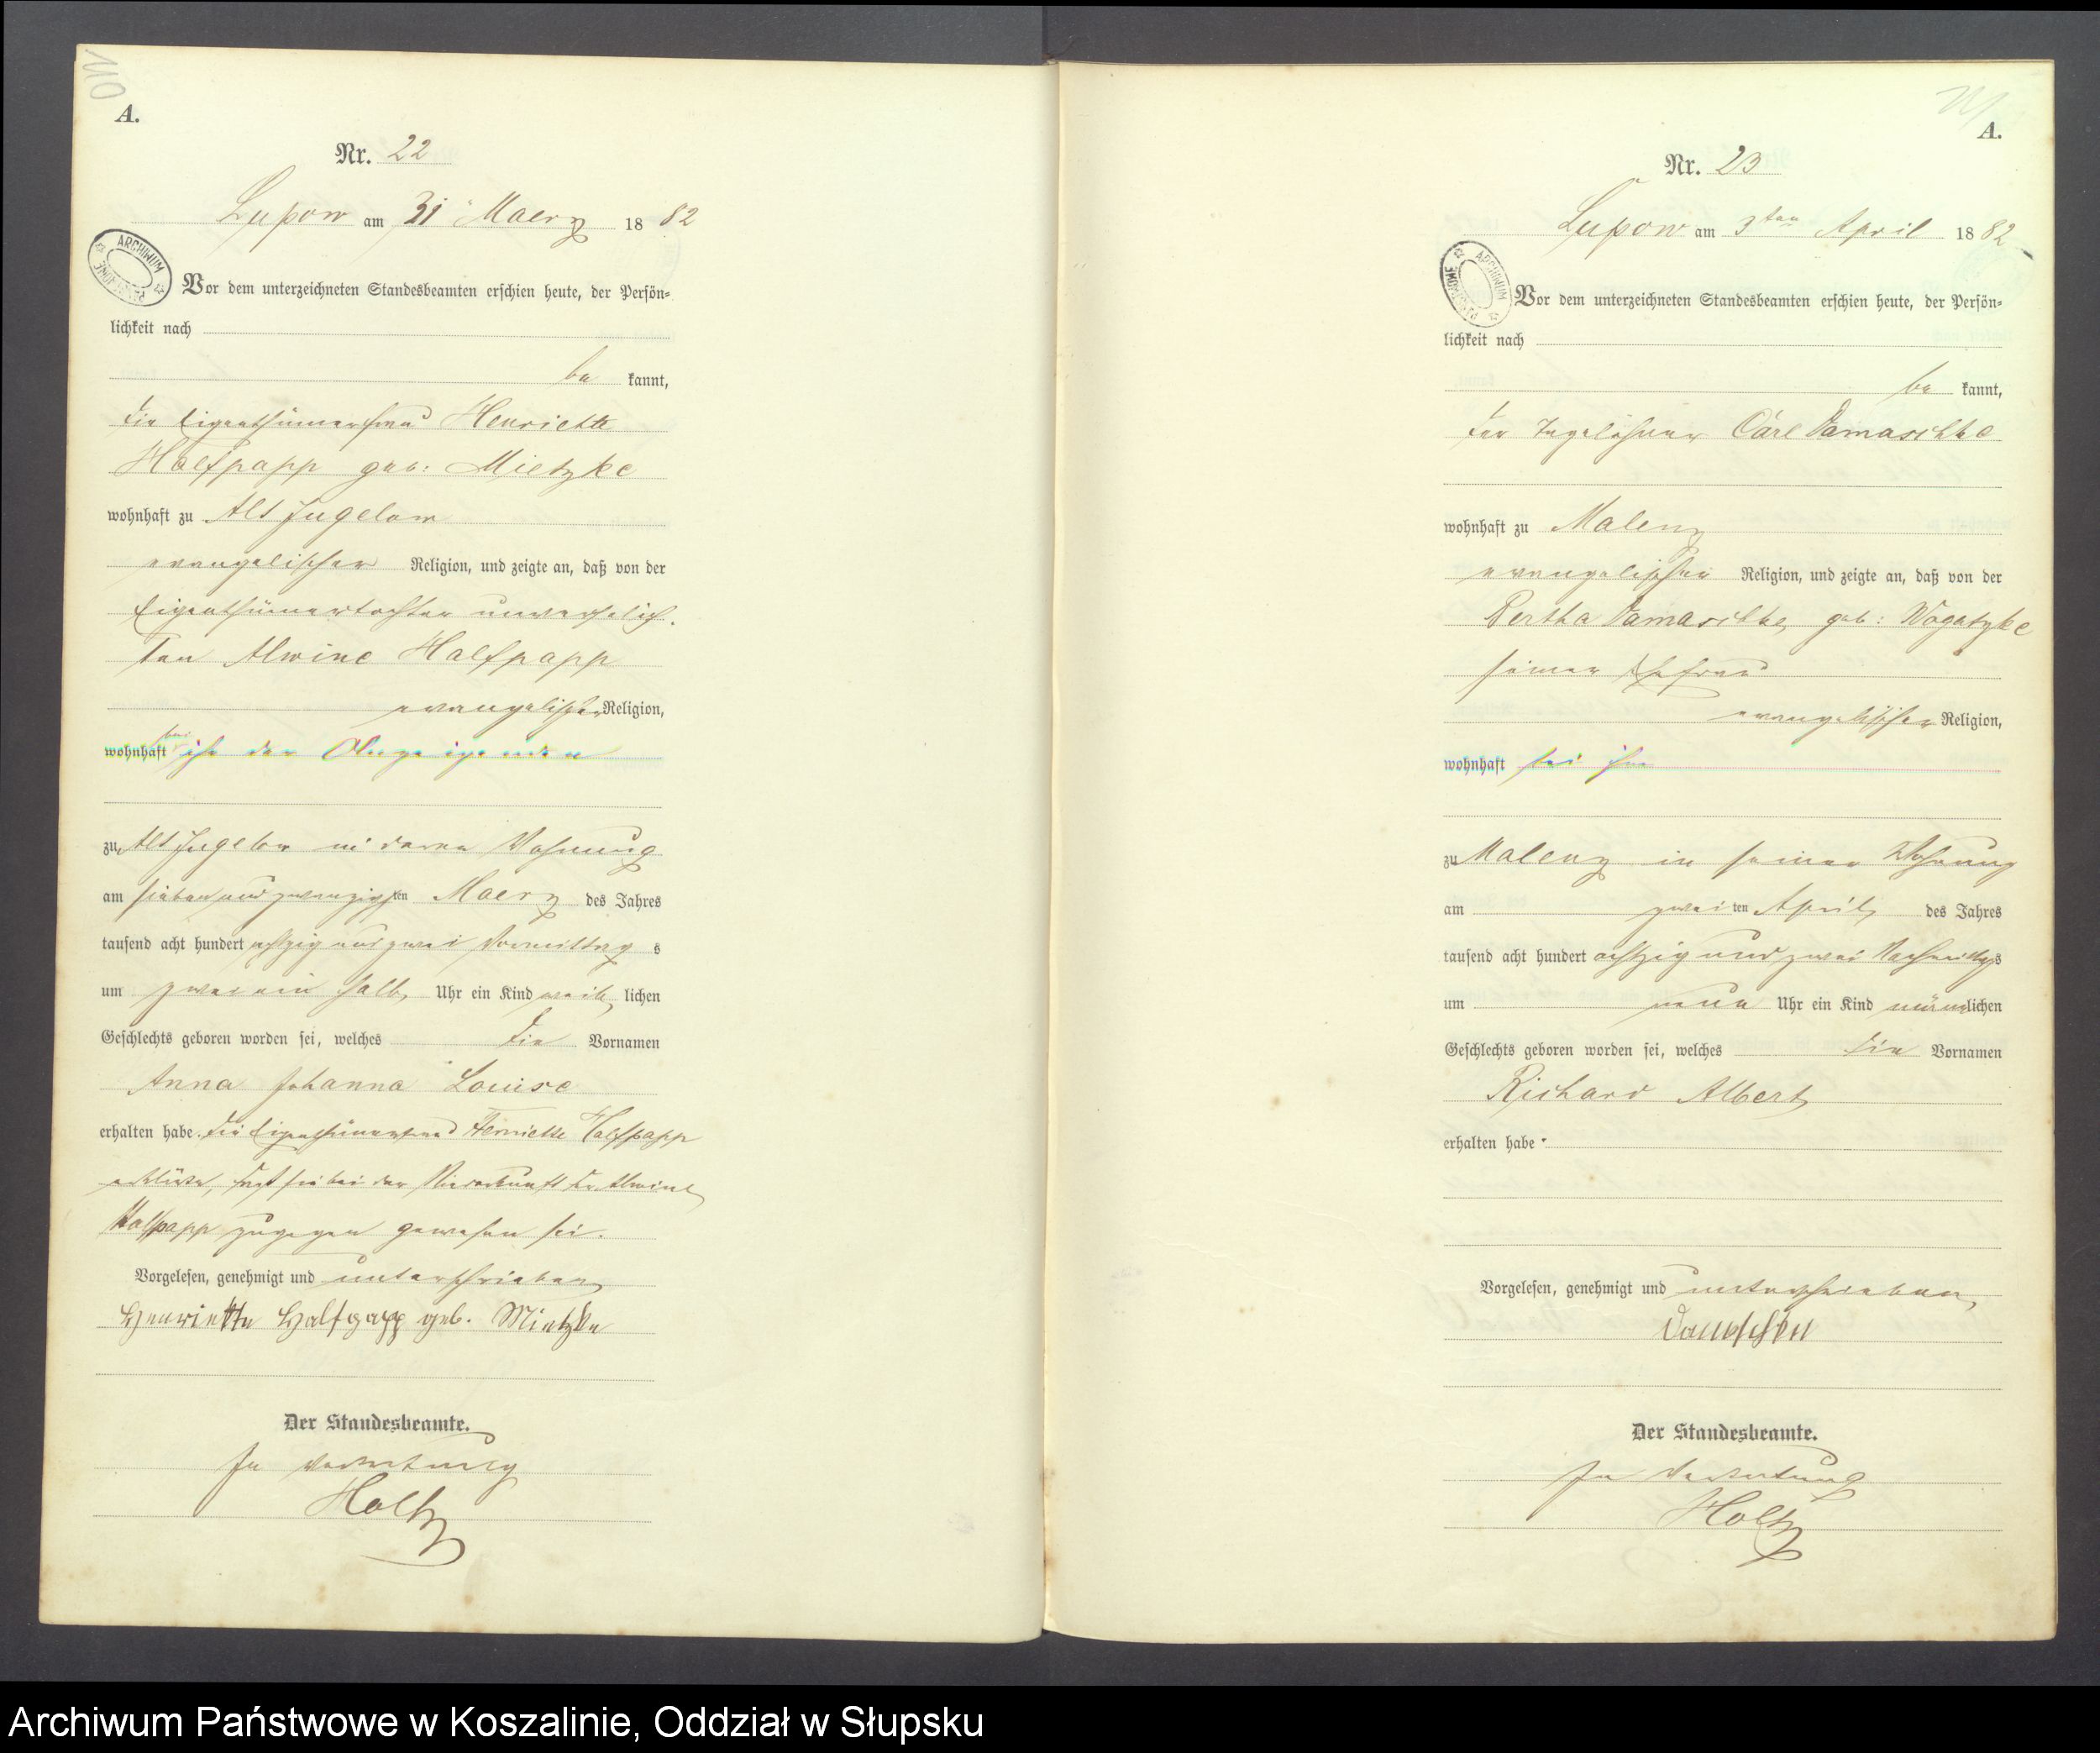 110
A.
Nr. 22
Lupow am 31 Maerz 1882
ARCHIWUM PAŃSTWOWE
Vor dem unterzeichneten Standesbeamten erschien heute, der Persön-
lichkeit nach
be kannt,
die Eigenthümerfrau Henriette
Halfpapp geb: Mietzke
wohnhaft zu Alt Jugelow
evangelischer Religion, und zeigte an, daß von der
Eigenthümertochter unverehelich-
ten Alwine Halfpapp
evangelischer Religion,
wohnhaft bei ihr der Anzeigenden
zu Alt Jugelow in deren Wohnung
am sieben und zwanzigsten Maerz des Jahres
tausend acht hundert achtzig und zwei Vormittags
um zwei ein halb Uhr ein Kind weiblichen
Geschlechts geboren worden sei, welches die Vornamen
Anna Johanna Louise
erhalten habe. Die Eigenthümerfrau Henriette Halfpapp
erklärte, daß sie bei der Niederkunft der Alwine
Halfpapp zugegen gewesen sei.
Vorgelesen, genehmigt und unterschrieben
Henriette Halfpapp geb. Mietzke
Der Standesbeamte.
In Vertretung
Holtz
A.
Nr. 23
Lupow am 3ten April 1882
ARCHIWUM PAŃSTWOWE
Vor dem unterzeichneten Standesbeamten erschien heute, der Persön-
lichkeit nach
be kannt,
der Tagelöhner Carl Damaschke
wohnhaft zu Malenz
evangelischer Religion, und zeigte an, daß von der
Bertha Damaschke, geb: Wogatzke
seiner Ehefrau
evangelischer Religion,
wohnhaft bei ihm
zu Malenz in seiner Wohnung
am zweiten April des Jahres
tausend acht hundert achtzig und zwei Nachmittags
um neun Uhr ein Kind männlichen
Geschlechts geboren worden sei, welches die Vornamen
Richard Albert
erhalten habe.
Vorgelesen, genehmigt und unterschrieben,
Der Standesbeamte.
In Vertretung
Holtz
Archiwum Państwowe w Koszalinie, Oddział w Słupsku